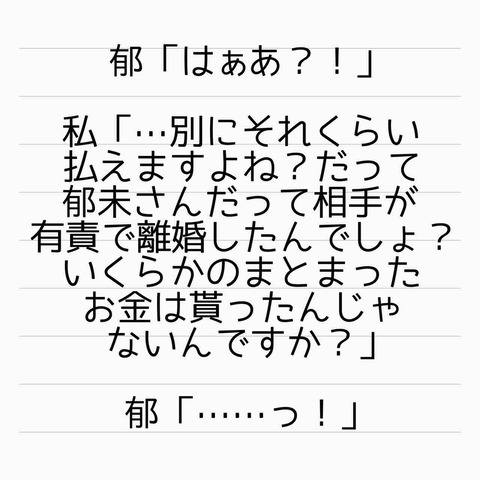 郁「はぁあ？！」
私「…別にそれくらい
払えますよね？だって
郁未さんだって相手が
有責で離婚したんでしょ？
いくらかのまとまった
お金は貰ったんじゃ
ないんですか？」
郁「……っ！」